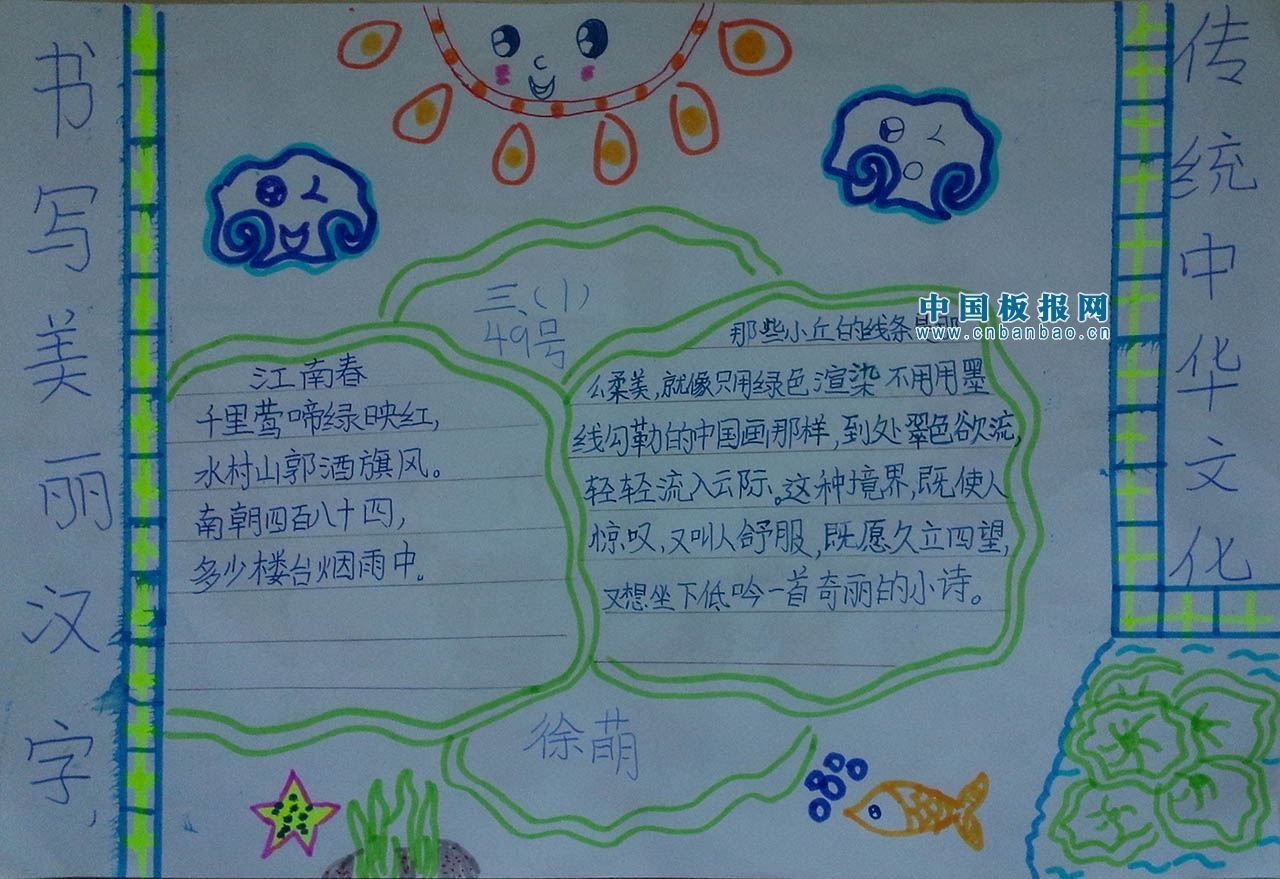 书写美丽汉字,
传统中华文化
三、(1)
49号
江南春
千里莺啼绿映红,
水村山郭酒旗风。
南朝四百八十四,
多少楼台烟雨中。
那些小丘的线条是那
么柔美,就像只用绿色渲染不用用墨
线勾勒的中国画那样,到处翠色欲流,
轻轻流入云际。这种境界,既使人
惊叹,又叫人舒服,既愿久立四望,
又想坐下低吟一首奇丽的小诗。
徐萌
中国板报网
www.cnbanbao.cn